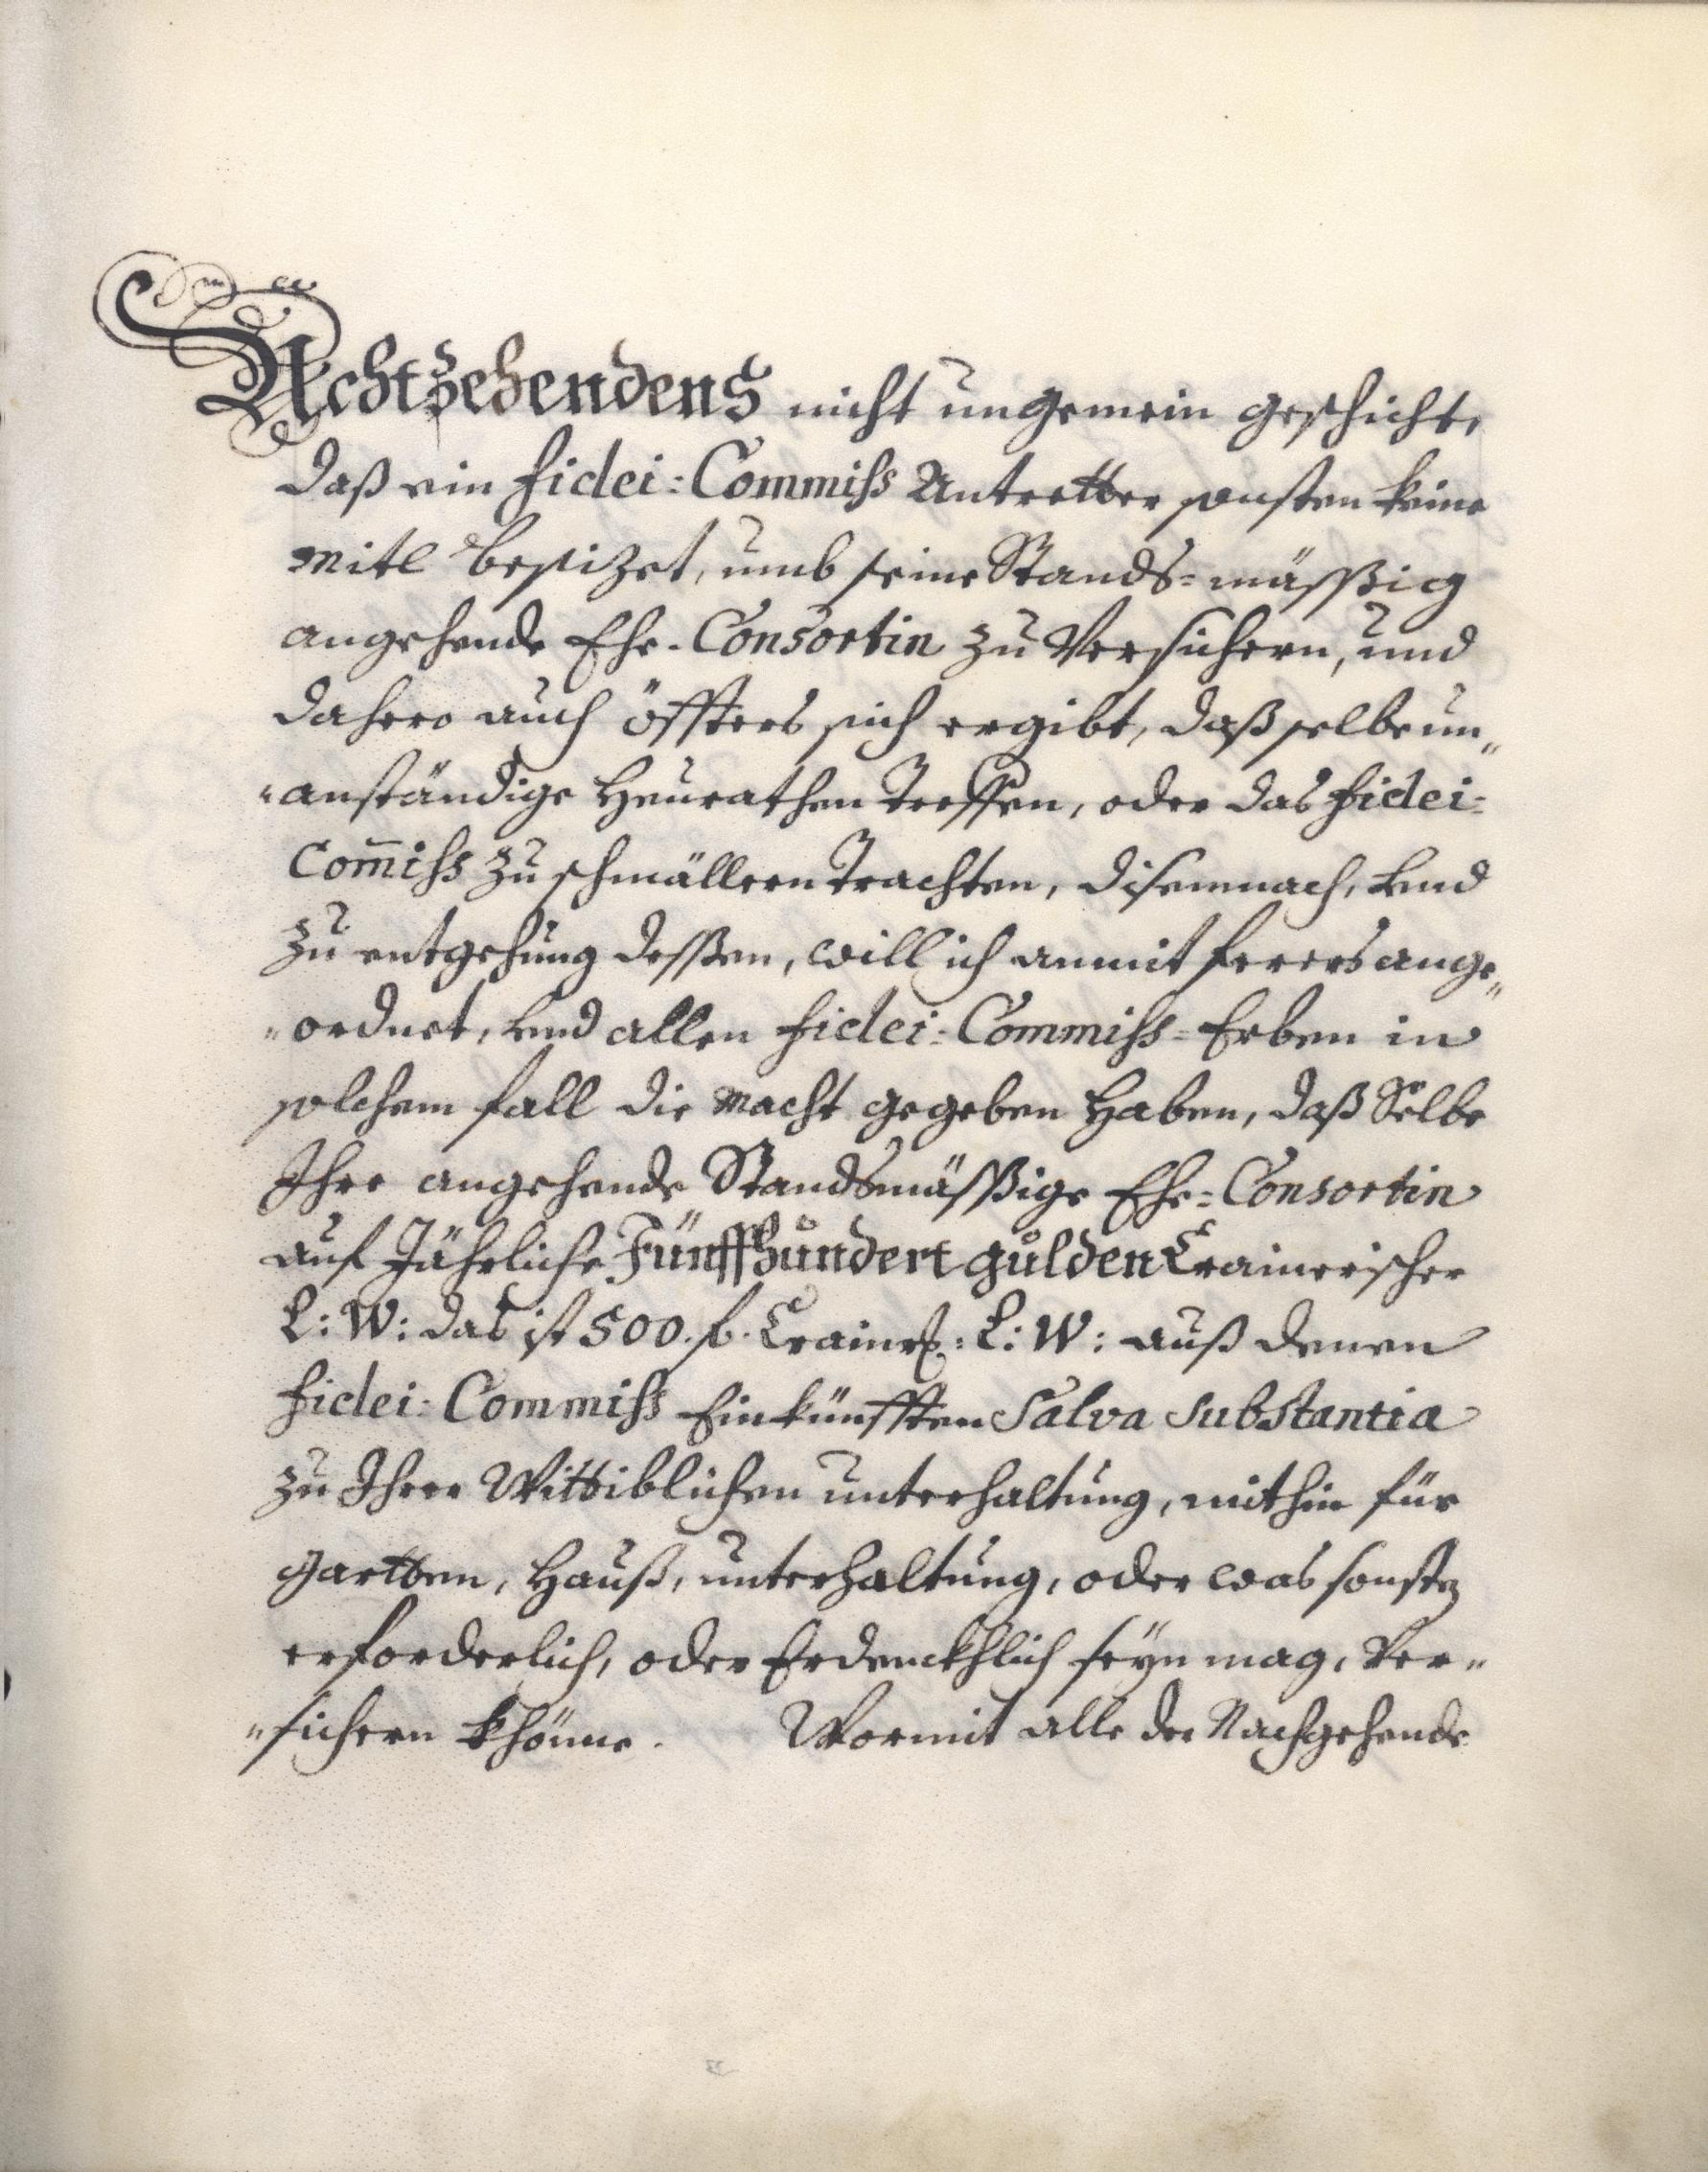 Achtzehendens nicht ungemein geschicht,
daß ein Fidei: Commiss Antretter sonsten keine
Mitl besizet, umb seine Stands=mässig
angehende Ehe-Consortin zu Versichern, und
dahero auch öffters sich ergibt, daß selbe un„
„anständige Heurathen Treffen, oder das Fidei=
Com̄iss zu schmällern Trachten, disemnach, und
zu entgehung dessen, will ich anmit ferers ange„
„ordnet, und allen Fidei=Commiss=Erben in
solchem fall die Macht gegeben haben, daß Selbe
Ihre angehende Standsmässige Ehe=Consortin
auf Jährliche Fünffhundert gulden Crainerischer
L: W: das ist 500. f. Crainr: L: W: auß denen
Fidei: Commiss Einkünfften Salva Substantia
zu Ihrer Wittiblichen unterhaltung, mithin für
Gartten, Hauß, unterhaltung, oder was sonsten
erforderlich, oder Erdenckhlich seyn mag, Ver„
„sichern khönne. Wormit alle der Nachgehende